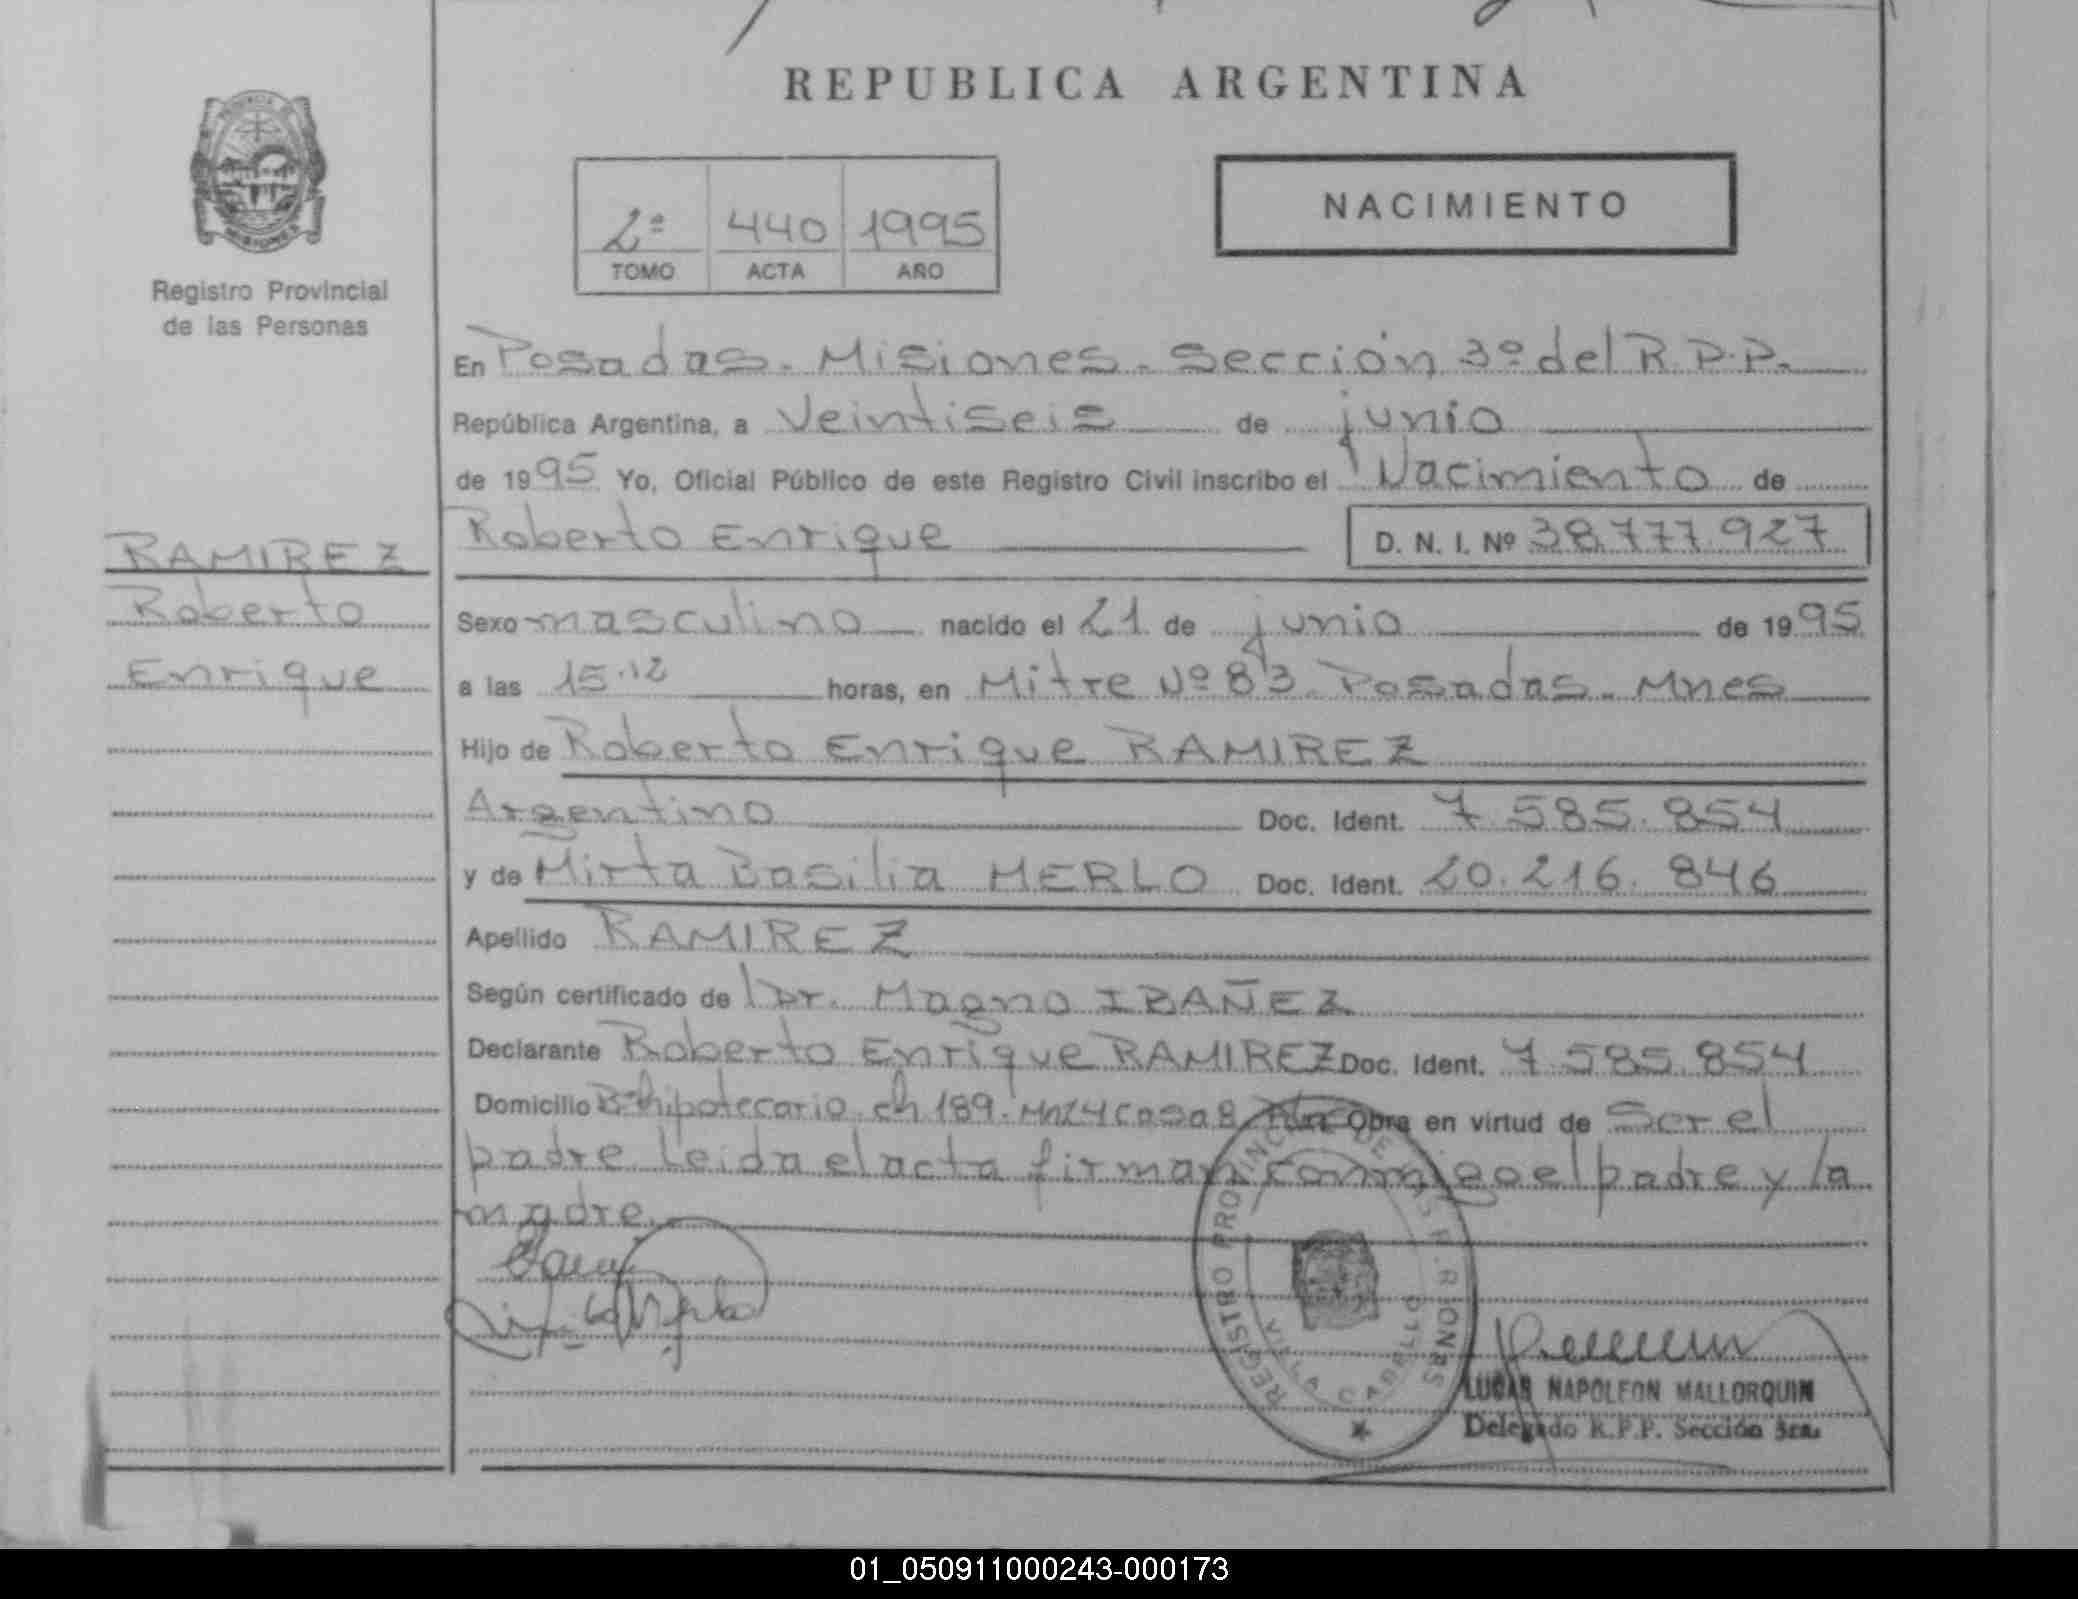 REPUBLICA ARGENTINA
NACIMIENTO
2º 440 1995
TOMO ACTA AÑO
MISIONES
Registro Provincial
de las Personas
RAMIREZ
Roberto
Enrique
En Posadas. Misiones. Sección 3º del R.P.P.
República Argentina, a Veintiseis de junio
de 1995 Yo, Oficial Público de este Registro Civil inscribo el Nacimiento de
Roberto Enrique D. N. I. Nº 38.777.927
Sexo masculino nacido el 21 de junio de 1995
a las 15.12 horas, en Mitre Nº 83 Posadas. Mnes
Hijo de Roberto Enrique RAMIREZ
Argentino Doc. Ident. 7.585.854
y de Mirta Basilia MERLO Doc. Ident. 20.216.846
Apellido RAMIREZ
Según certificado de l Dr. Magno IBAÑEZ
Declarante Roberto Enrique RAMIREZ Doc. Ident. 7.585.854
Domicilio Bº hipotecario ch 189. Mnz 4 casa 8 Obra en virtud de Ser el
padre Leida el acta firman conmigo el padre y la
madre.
REGISTRO PROVINCIAL DE
VILLA CABELLO
LUCAS NAPOLEON MALLORQUIN
Delegado R.P.P. Sección 3ra.
01_050911000243-000173